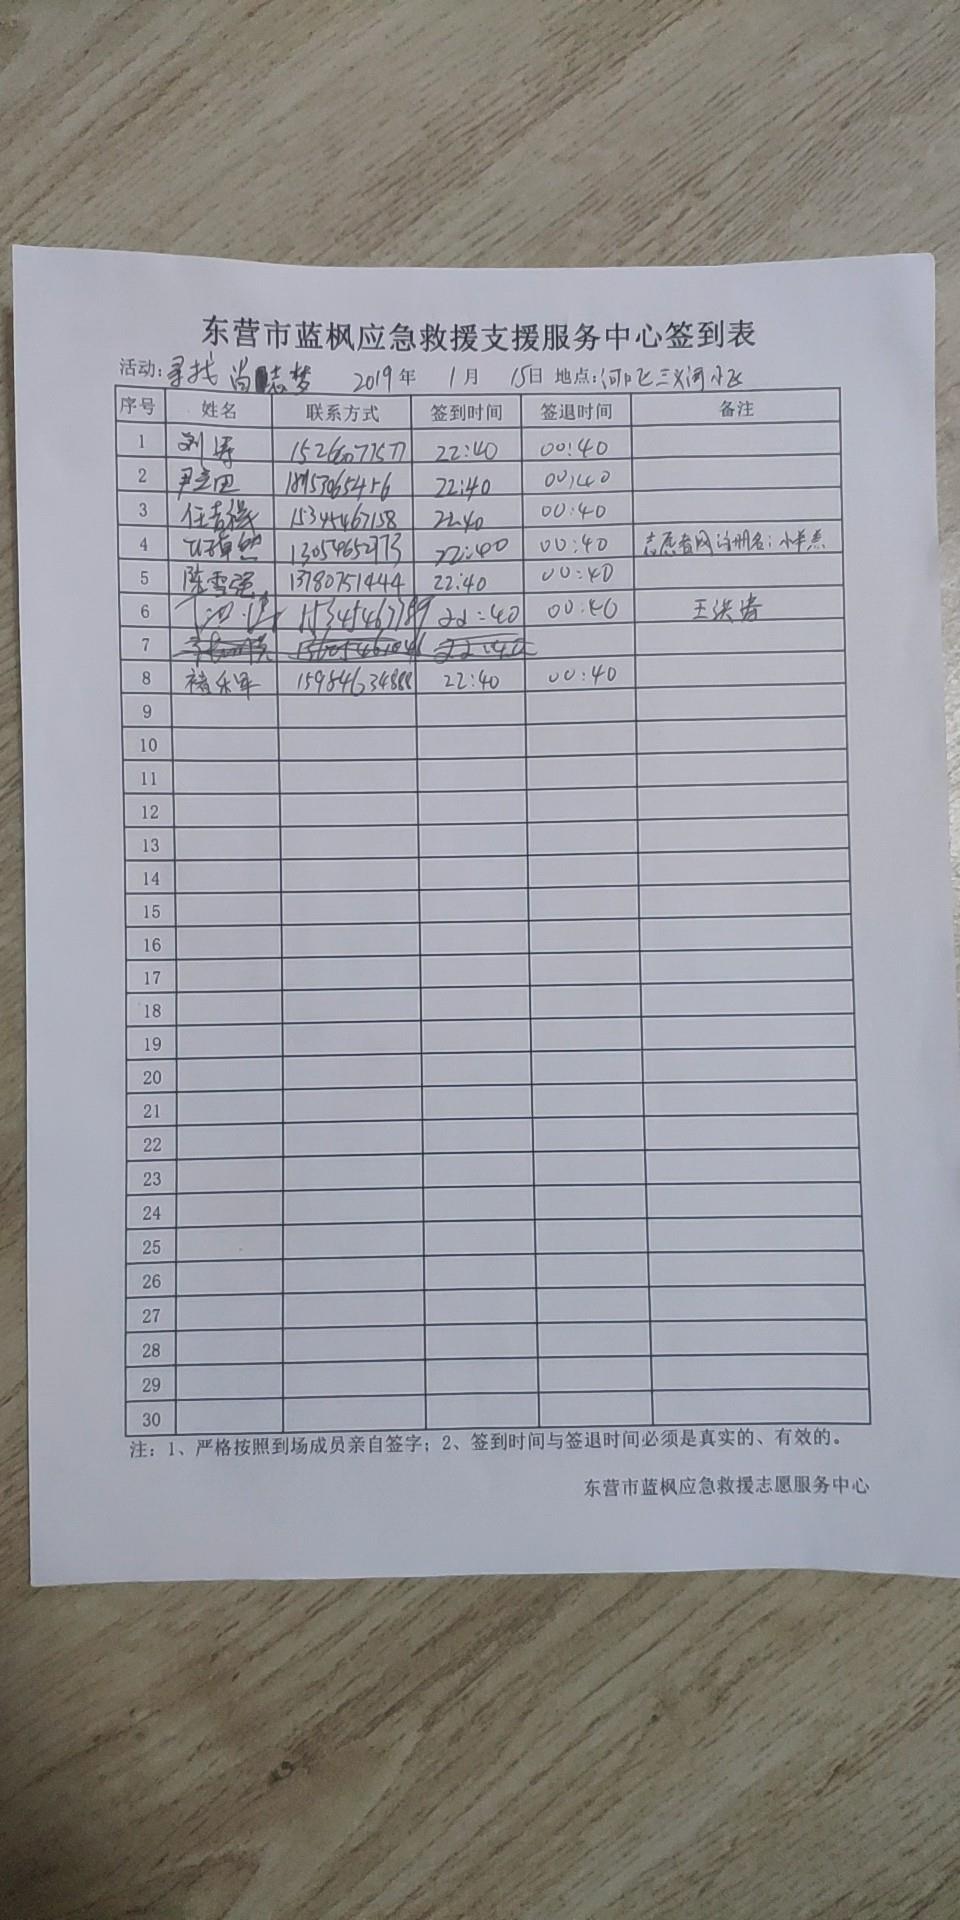 东营市蓝枫应急救援支援服务中心签到表
活动：寻找 尚志梦 2019年 1月 15日 地点：河口区三义河小区
序号 姓名 联系方式 签到时间 签退时间 备注
1 刘涛 22:40 00:40
2 尹立田 22:40 00:40
3 15345467158 22:40 00:40
4 13054652773 22:40 00:40 志愿者网注册名：
5 陈雪强 13780751444 22:40 00:40
6 15345467789 22:40 00:40 王洪涛
7 22:40
8 褚乐军 22:40 00:40
9
10
11
12
13
14
15
16
17
18
19
20
21
22
23
24
25
26
27
28
29
30
注：1、严格按照到场成员亲自签字；2、签到时间与签退时间必须是真实的、有效的。
东营市蓝枫应急救援志愿服务中心